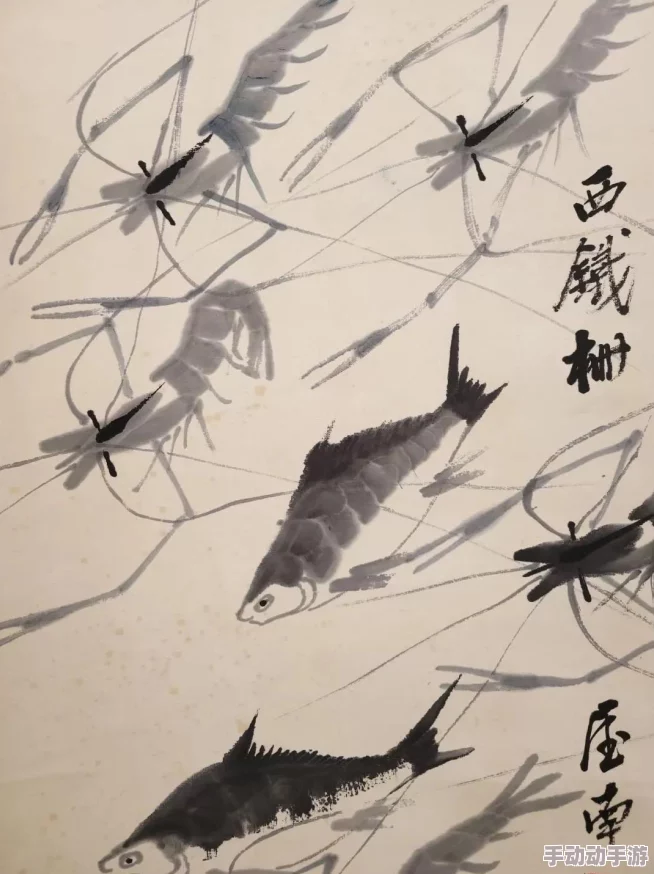 西鐵柵
屋南
手动动手游